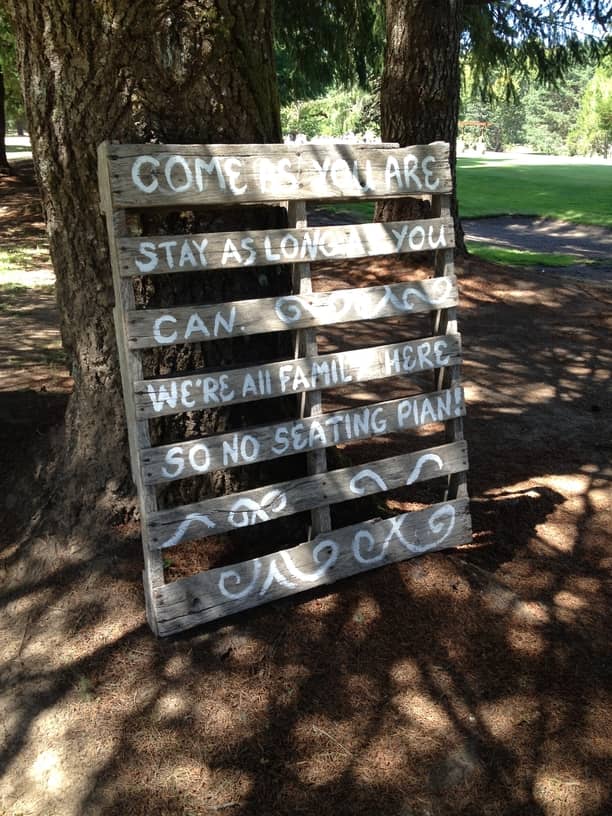 COME AS YOU ARE
STAY AS LONG AS YOU
CAN.
WE'RE All FAMILY HERE
SO NO SEATING PlAN!